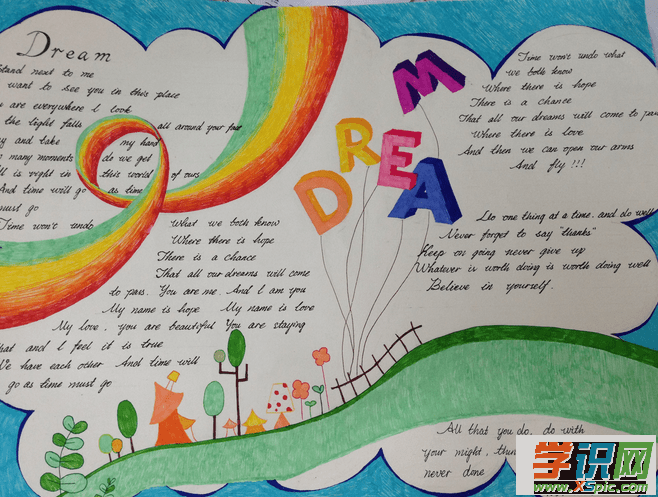 Dream
Stand next to me
want to see you in this place
are everywhere I look
the light falls all around your feet
and take my hand
many moments do we get
ll is right in this world of ours
And time will go as time
must go
Time won't undo
What we both know
Where there is hope
There is a chance
That all our dreams will come
to pass. You are me. And I am you
My name is hope My name is love
My love, you are beautiful You are staying
that and I feel it is true
We have each other And time will
go as time must go
DREAM
Time won't undo what
we both know
Where there is hope
There is a chance
That all our dreams will come to pass
Where there is love
And then we can open our arms
And fly !!!
Do one thing at a time. and do well
Never forget to say "thanks"
Keep on going never give up
Whatever is worth doing is worth doing well
Believe in yourself.
All that you do, do with
your might, thin
never done
学识网
www.XSpic.com